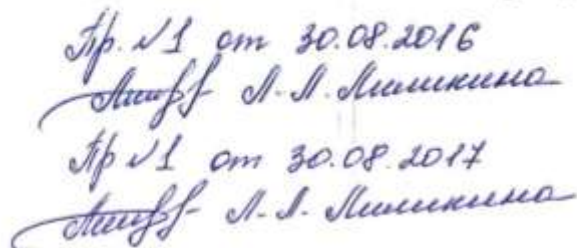 Пр. №1 от 30.08.2016
Л.Л. Миликина
Пр №1 от 30.08.2017
Л.Л. Миликина